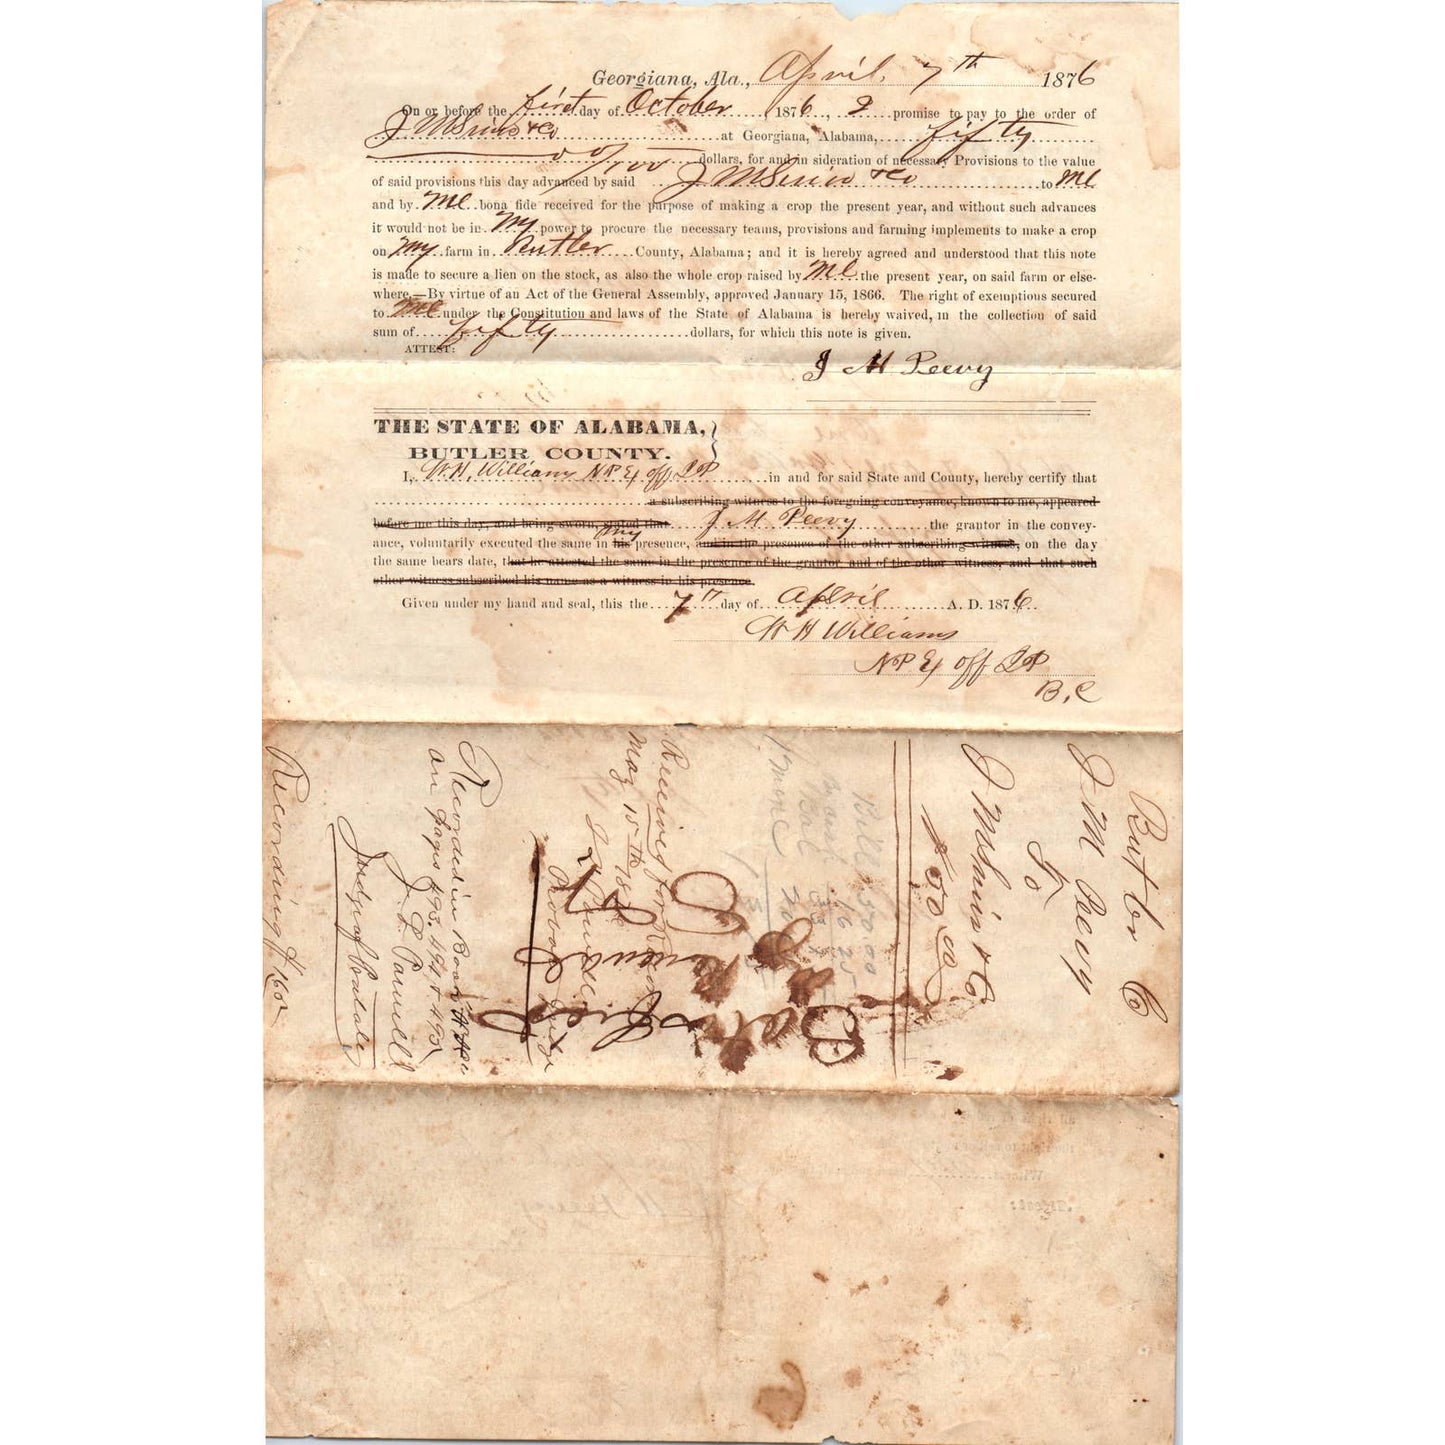 Georgiana, Ala., April 7th 1876
On or before the first day of October 1876, I promise to pay to the order of
J M Sims & Co at Georgiana, Alabama, fifty
00/100 dollars, for and in sideration of necessary Provisions to the value
of said provisions this day advanced by said J M Sims & Co to me
and by me bona fide received for the purpose of making a crop the present year, and without such advances
it would not be in my power to procure the necessary teams, provisions and farming implements to make a crop
on my farm in Butler County, Alabama; and it is hereby agreed and understood that this note
is made to secure a lien on the stock, as also the whole crop raised by me the present year, on said farm or else-
where.—By virtue of an Act of the General Assembly, approved January 15, 1866. The right of exemptions secured
to me under the Constitution and laws of the State of Alabama is hereby waived, in the collection of said
sum of fifty dollars, for which this note is given.
ATTEST:
J M Peevy
THE STATE OF ALABAMA,
BUTLER COUNTY.
I, W H Williams N P Ex off J P in and for said State and County, hereby certify that
a subscribing witness to the foregoing conveyance, known to me, appeared
before me this day, and being sworn, stated that J M Peevy the grantor in the convey-
my
ance, voluntarily executed the same in his presence, and in the presence of the other subscribing witness, on the day
the same bears date, that he attested the same in the presence of the grantor and of the other witness, and that such
other witness subscribed his name as a witness in his presence.
Given under my hand and seal, this the 7th day of April A. D. 1876.
W H Williams
N P Ex off J P
B. C
Butler Co
J M Peevy
To
J M Sims & Co
$50 00
50.00
16 25
Bal
Received for Record
May 15th 18
J L Powell
Probate Judge
Recorded in Book
on pages 493. 494 & 495
J. L Powell
Judge of Probate
Recording